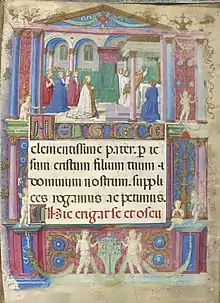 Te igitur
clementissime pater. p ie
sum cristum filium tuum
dominum nostrum. suppli
ces rogamus ac petimus.
Hic erigat se et oscu